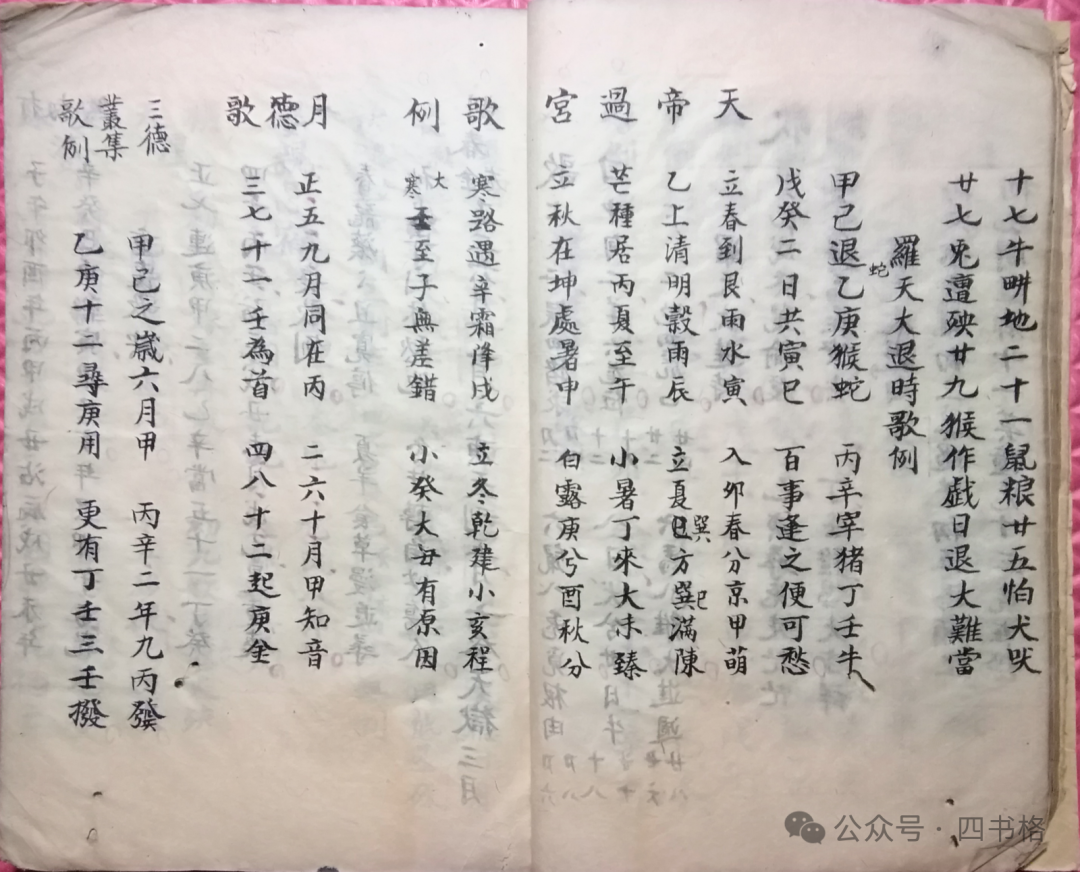 十七牛畊地二十一鼠粮廿五怕犬吠
廿七兎遭殃廿九猴作戯日退大難當
羅天大退時歌例
甲己退蛇乙庚猴蛇 丙辛罕猪丁壬牛
戊癸二日共寅巳 百事逢之便可愁
天 立春到艮雨水寅 入卯春分京甲萌
帝 乙上清明穀雨辰 立夏巽方巽巳滿陳
過 芒種居丙夏至午 小暑丁來大未臻
宮 立秋在坤處暑申 白露庚兮酉秋分
歌 寒路遇辛霜降戌 立冬乾建小亥程
例 大寒至子無差錯 小癸大丑有原因
月 正五九月同在丙 二六十月甲知音
德
歌 三七十一壬為首 四八十二起庚金
三德 甲己之歲六月甲 丙辛二年九丙發
叢集
歌例 乙庚十二尋庚用 更有丁壬三壬撥
公众号·四书格